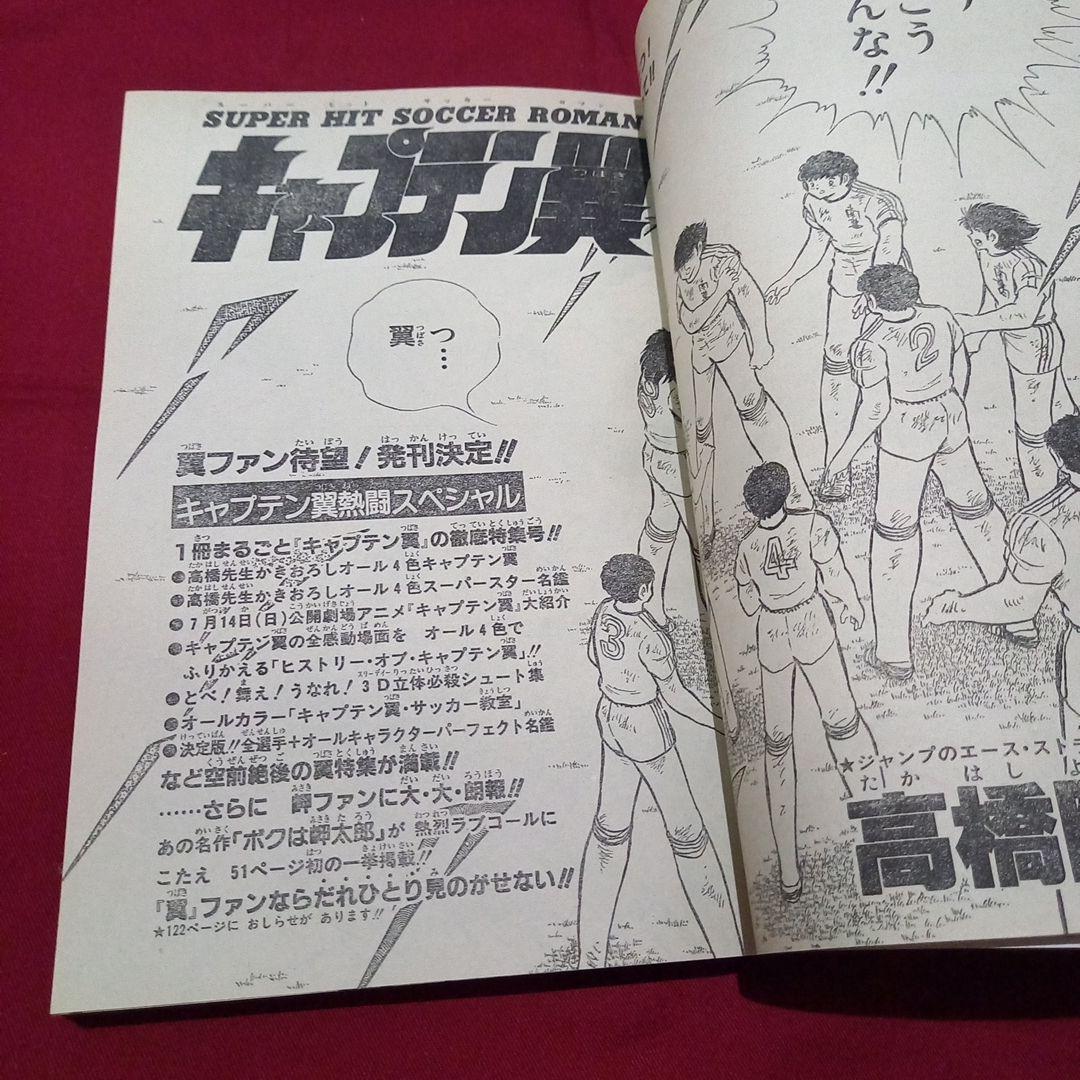 SUPER HIT SOCCER ROMAN
キャプテン翼
翼つ…
翼ファン待望！発刊決定!!
キャプテン翼熱闘スペシャル
1冊まるごと『キャプテン翼』の徹底特集号!!
●高橋先生かきおろしオール4色キャプテン翼
●高橋先生かきおろしオール4色スーパースター名鑑
●7月14日(日)公開劇場アニメ『キャプテン翼』大紹介
●キャプテン翼の全感動場面を オール4色で
ふりかえる「ヒストリー・オブ・キャプテン翼」!!
●とべ！舞え！うなれ！3D立体必殺シュート集
●オールカラー「キャプテン翼・サッカー教室」
●決定版!!全選手+オールキャラクターパーフェクト名鑑
など空前絶後の翼特集が満載!!
……さらに 岬ファンに大・大・朗報!!
あの名作「ボクは岬太郎」が 熱烈ラブコールに
こたえ 51ページ初の一挙掲載!!
『翼』ファンならだれひとり見のがせない!!
★122ページに おしらせが あります!!
こう
んな!!
2
9
3
4
★ジャンプのエース・ストラ
たかはしよ
高橋